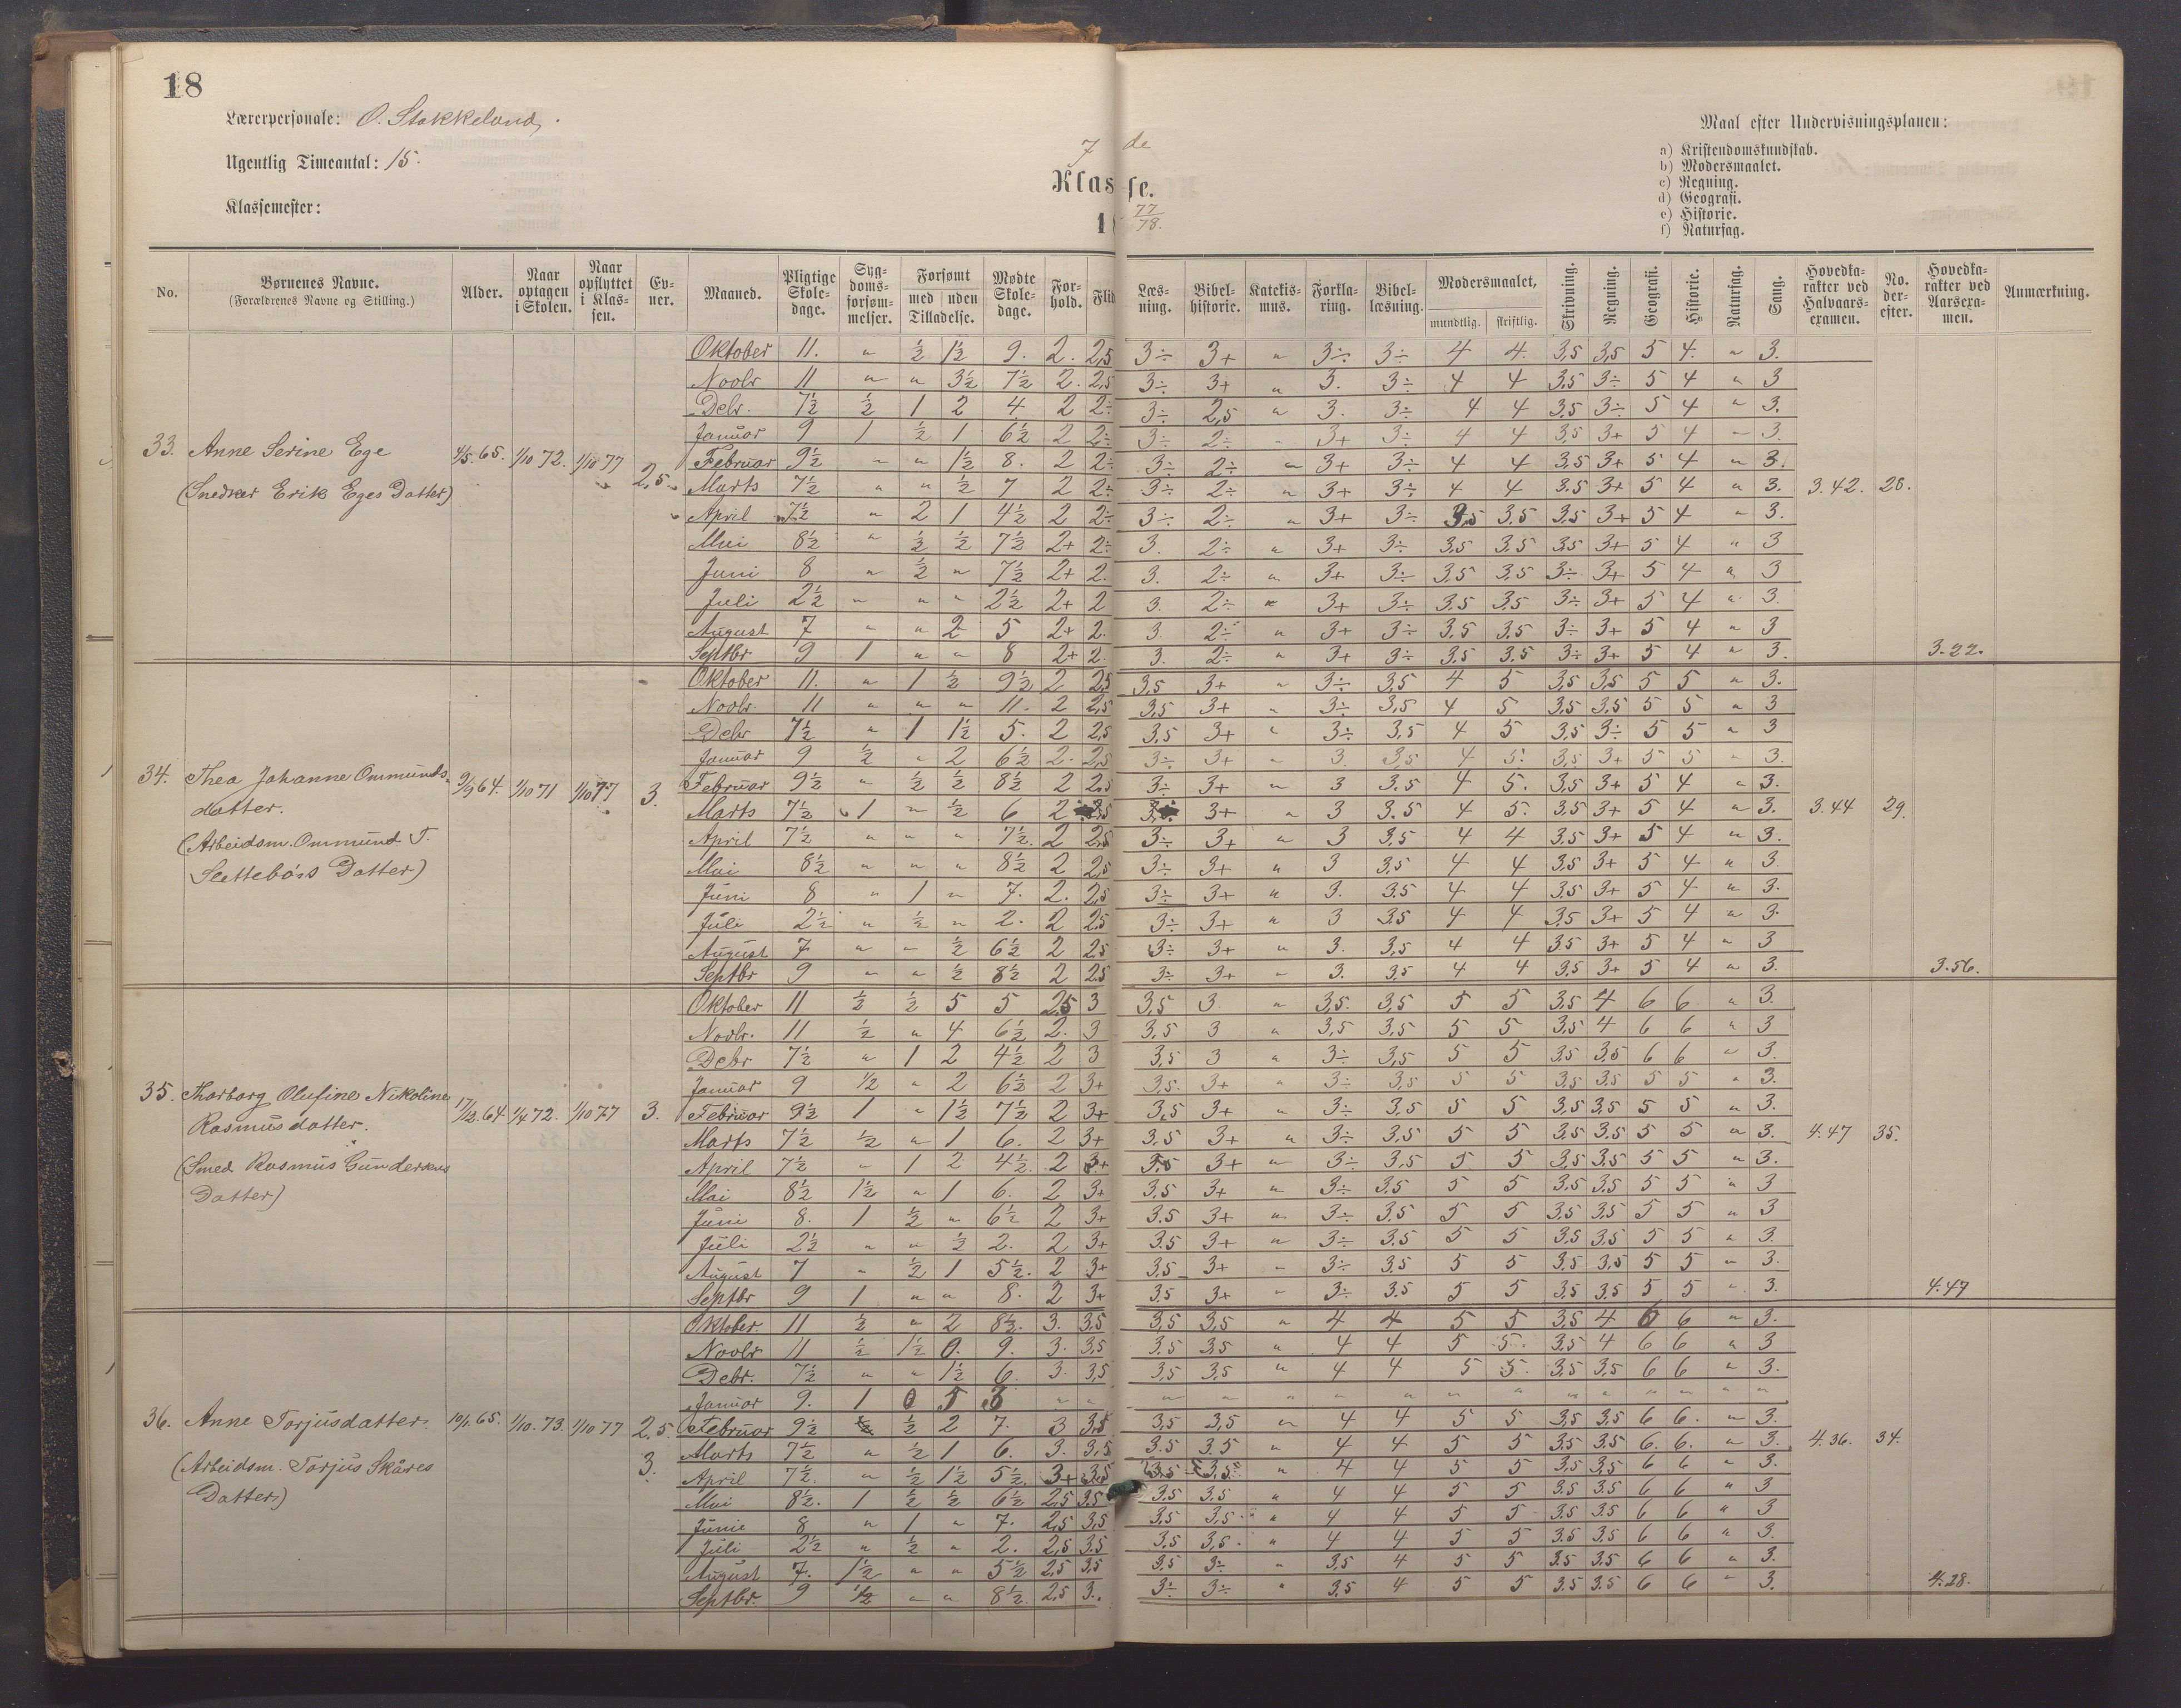 18
Lærerpersonale: O. Stokkeland.
Ugentlig Timeantal: 15.
Klassemester:
7 de
Klasse.
18 77/78.
Maal efter Undervisningsplanen:
a) Kristendomskundskab.
b) Modersmaalet.
c) Regning.
d) Geografi.
e) Historie.
f) Naturfag.
No. | Børnenes Navne. (Forældrenes Navne og Stilling.) | Alder. | Naar optagen i Skolen. | Naar opflyttet i Klassen. | Evner. | Maaned. | Pligtige Skoledage. | Sygdomsforsømmelser. | Forsømt med / uden Tilladelse. | Mødte Skoledage. | Forhold. | Flid | Læsning. | Bibelhistorie. | Katekismus. | Forklaring. | Bibellæsning. | Modersmaalet, mundtlig. | skriftlig. | Skrivning. | Regning. | Geografi. | Historie. | Naturfag. | Sang. | Hovedkarakter ved Halvaarsexamen. | No. derefter. | Hovedkarakter ved Aarsexamen. | Anmærkning.
33. Anne Serine Ege 4/5.65. 1/10 72. 1/10 77 2,5
(Snedker Erik Eges Datter)
Oktober 11. " ½ 1½ 9. 2. 2,5 3÷ 3+ " 3÷ 3÷ 4 4. 3,5 3,5 5 4. " 3.
Novbr 11 " " 3½ 7½ 2. 2,5 3÷ 3+ " 3. 3÷ 4 4 3,5 3÷ 5 4 " 3
Debr. 7½ ½ 1 2 4 2 2÷ 3÷ 2,5 " 3. 3÷ 4 4 3,5 3÷ 5 4 " 3.
Januar 9 1 ½ 1 6½ 2 2÷ 3÷ 2÷ " 3+ 3÷ 4 4 3,5 3+ 5 4 " 3.
Februar 9½ " " 1½ 8. 2 2÷ 3÷ 2÷ " 3+ 3÷ 4 4 3,5 3+ 5 4 " 3.
Marts 7½ " " ½ 7 2 2÷ 3÷ 2÷ " 3+ 3÷ 4 4 3.5 3+ 5 4 " 3. 3.42. 28.
April 7½ " 2 1 4½ 2 2÷ 3÷ 2÷ " 3+ 3÷ 3,5 3.5 3,5 3+ 5 4 " 3.
Mai 8½ " ½ ½ 7½ 2+ 2÷ 3. 2÷ " 3+ 3÷ 3,5 3.5 3,5 3+ 5 4 " 3
Juni 8 " ½ " 7½ 2+ 2. 3. 2÷ " 3+ 3÷ 3,5 3,5 3÷ 3+ 5 4 " 3
Juli 2½ " " " 2½ 2+ 2 3. 2÷ " 3+ 3÷ 3,5 3,5 3÷ 3+ 5 4 " 3.
August 7 " " 2 5 2+ 2. 3 2÷ " 3+ 3÷ 3,5 3,5 3÷ 3+ 5 4 " 3
Septbr 9 1 " " 8 2+ 2. 3. 2÷ " 3+ 3÷ 3,5 3,5 3÷ 3+ 5 4 " 3. 3.22.
34. Thea Johanne Ommunds- 9/9 64. 1/10 71 1/10 77 3.
datter.
(Arbeidsm. Ommund T.
Slettebø's Datter)
Oktober 11. " 1 ½ 9½ 2 2,5 3,5 3+ " 3÷ 3,5 4 5 3,5 3,5 5 5 " 3.
Novbr 11 " " " 11. 2 2,5 3,5 3+ " 3÷ 3,5 4 5 3,5 3,5 5 5 " 3
Debr 7½ " 1 1½ 5. 2 2,5 3,5 3+ " 3÷ 3,5 4 5 3,5 3÷ 5 5 " 3
Januar 9 ½ " 2 6½ 2. 2,5 3÷ 3+ " 3. 3,5 4 5. 3,5 3+ 5 5 " 3.
Februar 9½ " ½ ½ 8½ 2 2,5 3÷ 3+ " 3 3.5 4 5. 3,5 3+ 5 4 " 3.
Marts 7½ 1 " ½ 6 2 2,5 3+ " 3 3.5 4 5. 3.5 3+ 5 4 " 3. 3.44 29.
April 7½ " " " 7½. 2 2,5 3÷ 3+ " 3 3,5 4 4 3,5 3+ 5 4 " 3.
Mai 8½ " " " 8½ 2 2,5 3÷ 3+ " 3 3,5 4 4 3,5 3+ 5 4 " 3
Juni 8 " 1 " 7. 2. 2,5 3÷ 3+ " 3. 3.5 4 4 3.5 3+ 5 4 " 3.
Juli 2½ " ½ " 2. 2 2.5 3÷ 3+ " 3 3.5 4 4 3,5 3+ 5 4 " 3.
August 7 " " ½ 6½ 2 2.5 3÷ 3+ " 3. 3,5 4 4 3.5 3+ 5 4 " 3
Septbr 9 " " ½ 8½ 2 2.5 3÷ 3+ " 3. 3,5 4 4 3,5 3+ 5 4 " 3. 3.56.
35. Thorborg Olufine Nikoline 17/12.64 1/4 72. 1/10 77 3.
Rasmusdatter.
(Smed Rasmus Gundersens
Datter)
Oktober 11 ½ ½ 5 5 2,5 3 3,5 3 " 3,5. 3,5 5 5 3,5 4 6 6 " 3.
Novbr. 11 ½ " 4 6½ 2. 3 3,5 3 " 3,5 3,5 5 5 3,5 4 6 6 " 3
Debr 7½ " 1 2 4½ 2 3 3,5 3 " 3÷ 3,5 5 5 3,5 3,5 6 6 " 3.
Januar 9 ½ " 2 6½ 2 3+ 3,5. 3+ " 3÷ 3,5 5 5 3,5 3.5 5 5 " 3.
Februar 9½ 1 " 1½ 7½ 2 3+ 3,5 3+ " 3÷ 3,5 5 5 3,5 3,5 5 5 " 3.
Marts 7½ ½ " 1 6. 2 3+ 3,5 3+ " 3÷ 3,5 5 5 3,5 3.5 5 5 " 3. 4.47 35.
April 7½ " 1 2 4½ 2 3+ 3,5 3+ " 3÷ 3,5 5 5 3,5 3,5 5 5 " 3.
Mai 8½ 1½ " 1 6. 2 3+ 3,5 3+ " 3÷ 3,5 5 5 3,5 3,5 5 5 " 3
Juni 8. 1 ½ " 6½ 2 3+ 3.5 3+ " 3÷ 3,5 5 5 3,5 3,5 5 5 " 3
Juli 2½ " " ½ 2. 2 3+ 3.5 3+ " 3÷ 3.5 5 5 3,5 3,5 5 5 " 3.
August 7 " ½ 1 5½. 2 3+ 3,5 3+ " 3÷ 3,5 5 5 3,5 3,5 5 5 " 3.
Septbr 9 1 " " 8. 2 3+ 3.5 3+ " 3÷ 3.5 5 5 3,5 3.5 5 5 " 3. 4.47
36. Anne Torjusdatter. 10/1.65. 1/10.73. 1/10 77 2,5.
3.
(Arbeidsm. Torjus Skåres
Datter)
Oktober. 11 ½ " 2 8½. 3. 3.5 3,5 3,5 " 4 4 5 5 3,5 4 6 6 " 3.
Novbr 11 ½ 1½ 0. 9. 3. 3,5 3,5 3,5 " 4 4 5 5. 3,5 4 6 6 " 3
Debr. 7½ " " 1½ 6. 3. 3,5 3,5 3,5 " 4 4 5 5. 3,5 3,5 6 6 " 3.
Januar 9. 1 0 5 3 " " " " " " " " " " " " " " "
Februar 9½ ½ 2 7. 3 3,5 3,5 3,5 " 4 4 5 5 3,5 3,5 6 6. " 3.
Marts 7½ " ½ 1 6. 3. 3,5 3.5 3.5 " 4 4 5 5 3.5 3.5 6. 6. " 3. 4.36. 34.
April 7½. " ½ 1½ 5½. 3+ 3,5 3,5 3,5 " 4 4 5 5 3,5 3,5 6 6 " 3.
Mai 8½. 1 ½ ½ 6½ 2,5 3.5 3.5 3.5 " 4 4 5 5 3.5 3.5 6 6 " 3
Junie 8 " 1 " 7. 2,5 3,5 3,5 3,5 " 4 4 5 5 3,5 3.5 6 6 " 3
Juli 2½ " ½ " 2. 2,5 3.5 3,5 3,5. " 4 4 5 5 3.5 3,5 6 6 " 3.
August 7. 1½ " " 5½ 2,5 3,5 3.5 3÷ " 3,5 4 5 5 3.5 3.5 6 6 " 3.
Septbr. 9 ½ " " 8½. 2,5 3. 3÷ 3÷ " 3.5 4 5 5 3.5 3.5 6 6 " 3. 4.28.